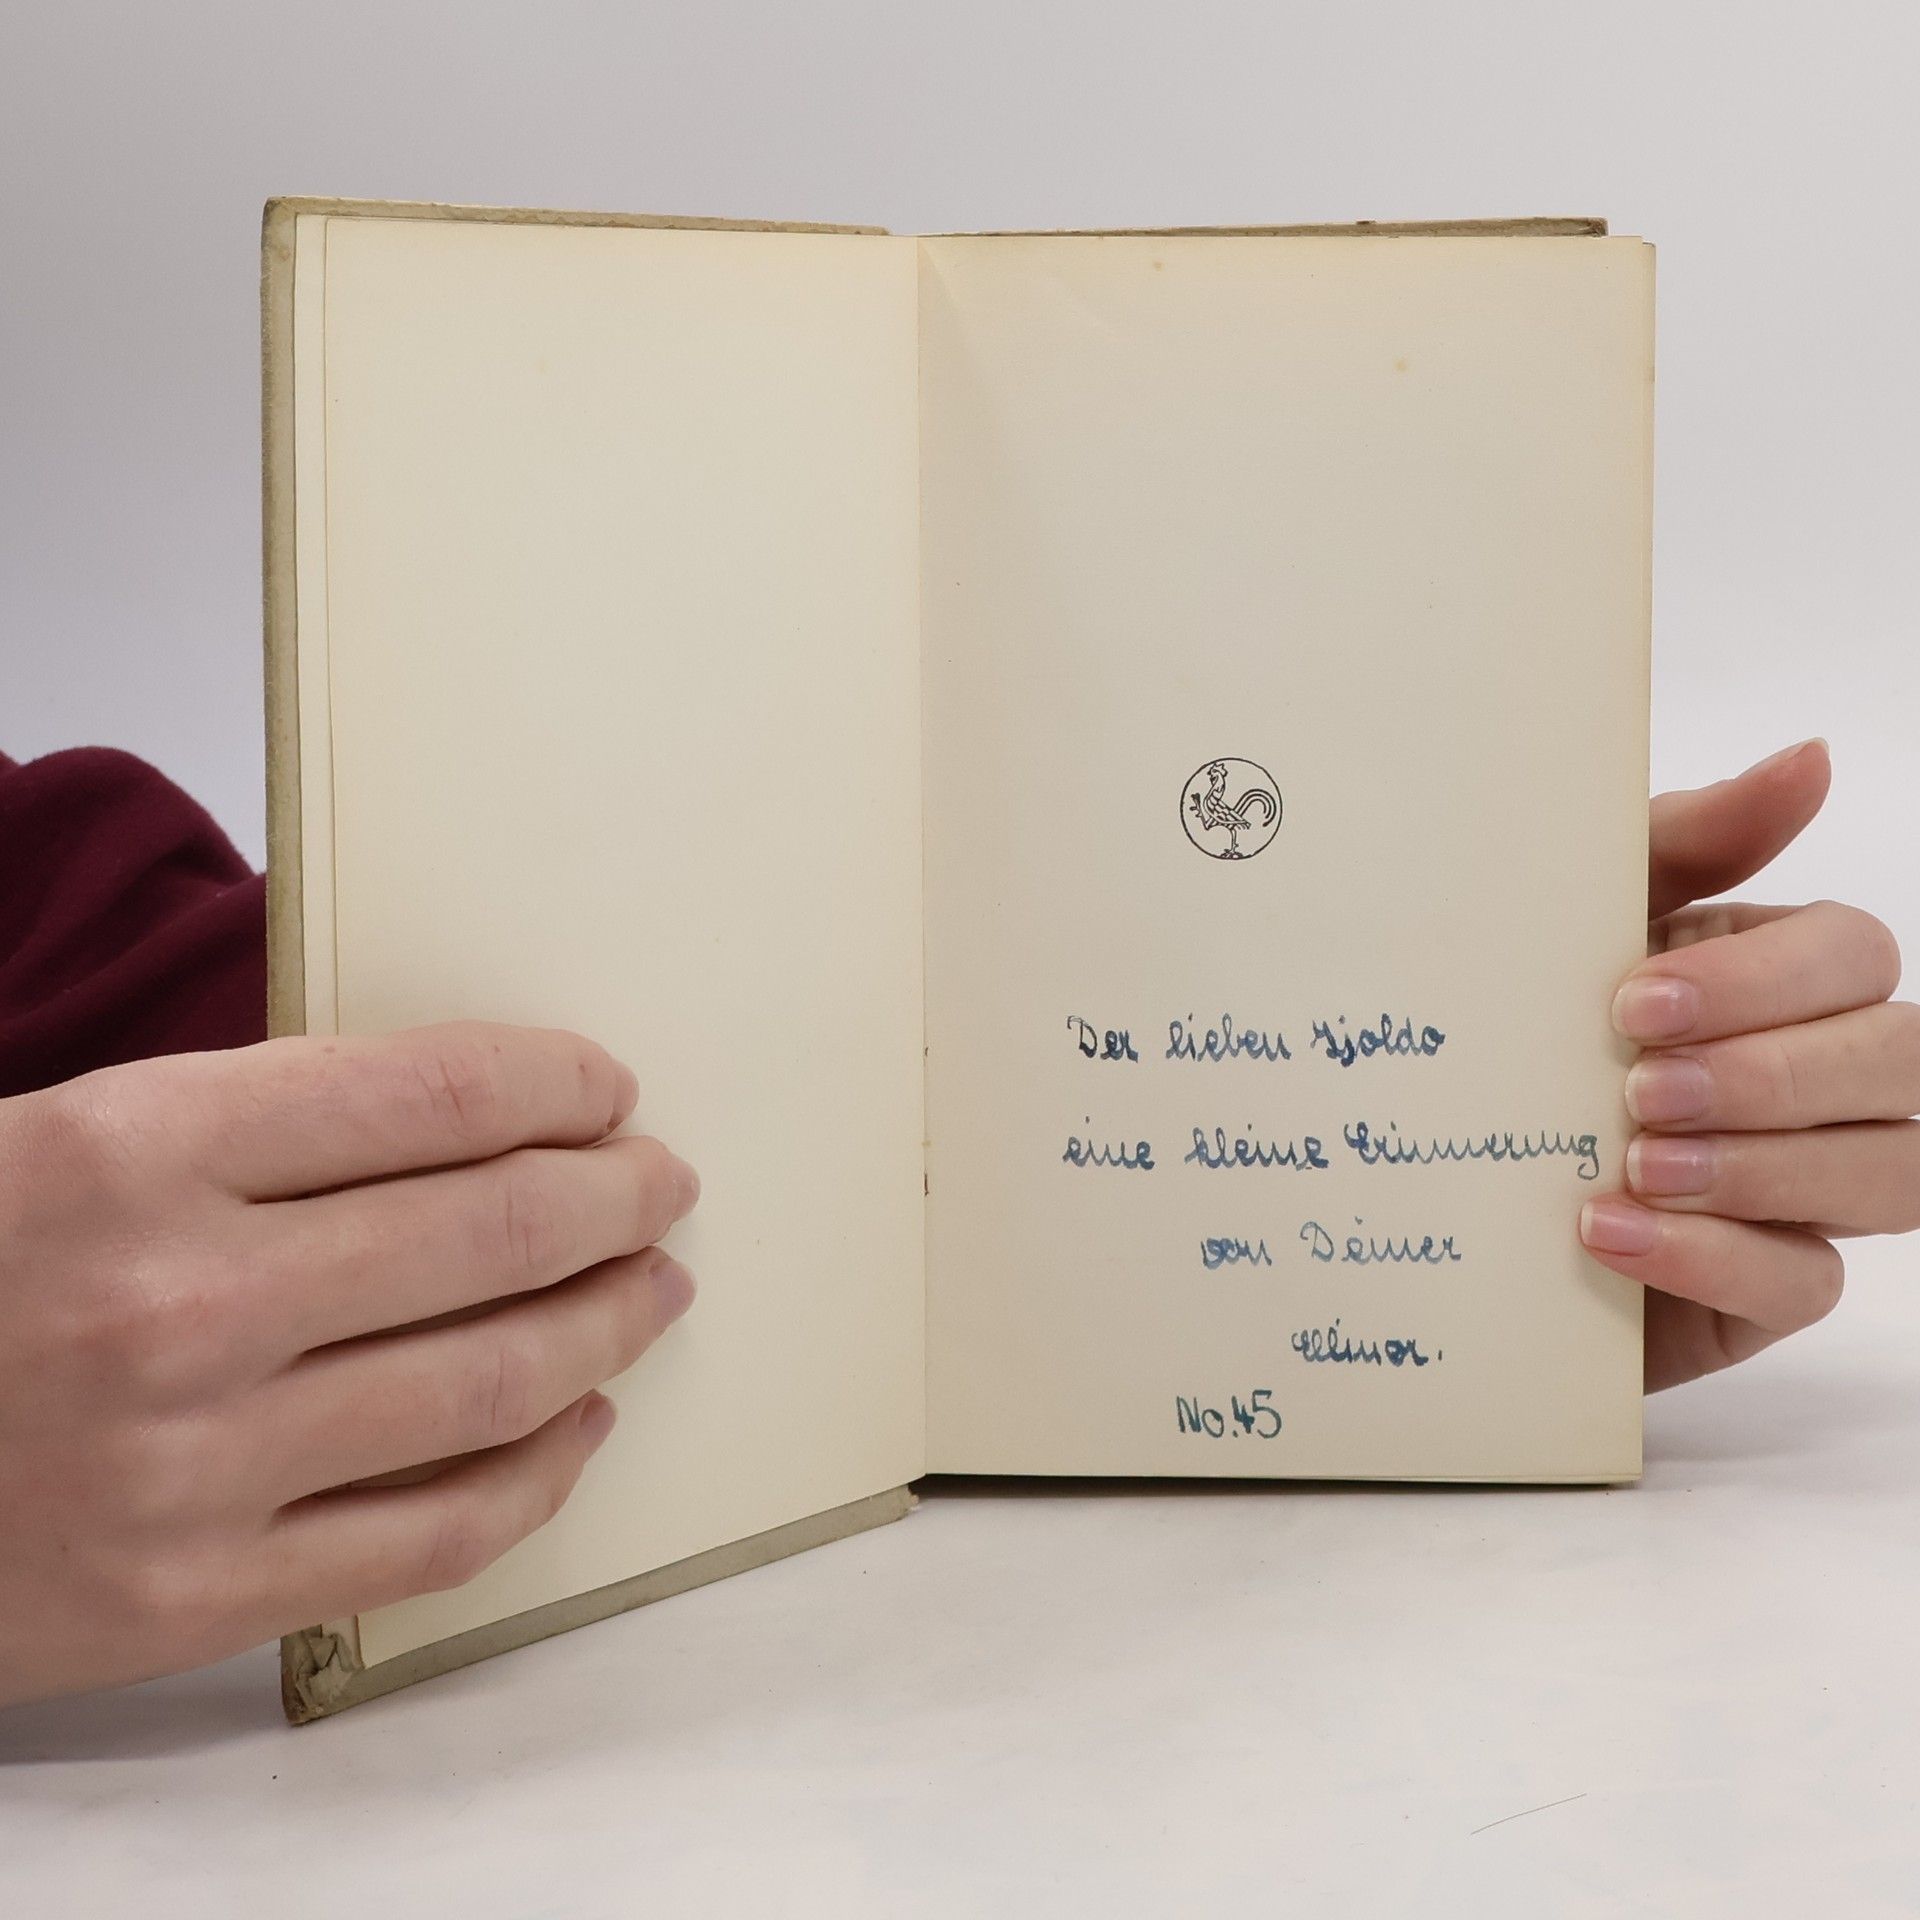 Der lieben Isolde
eine kleine Erinnerung
von Deiner
Ellinor.
No. 45